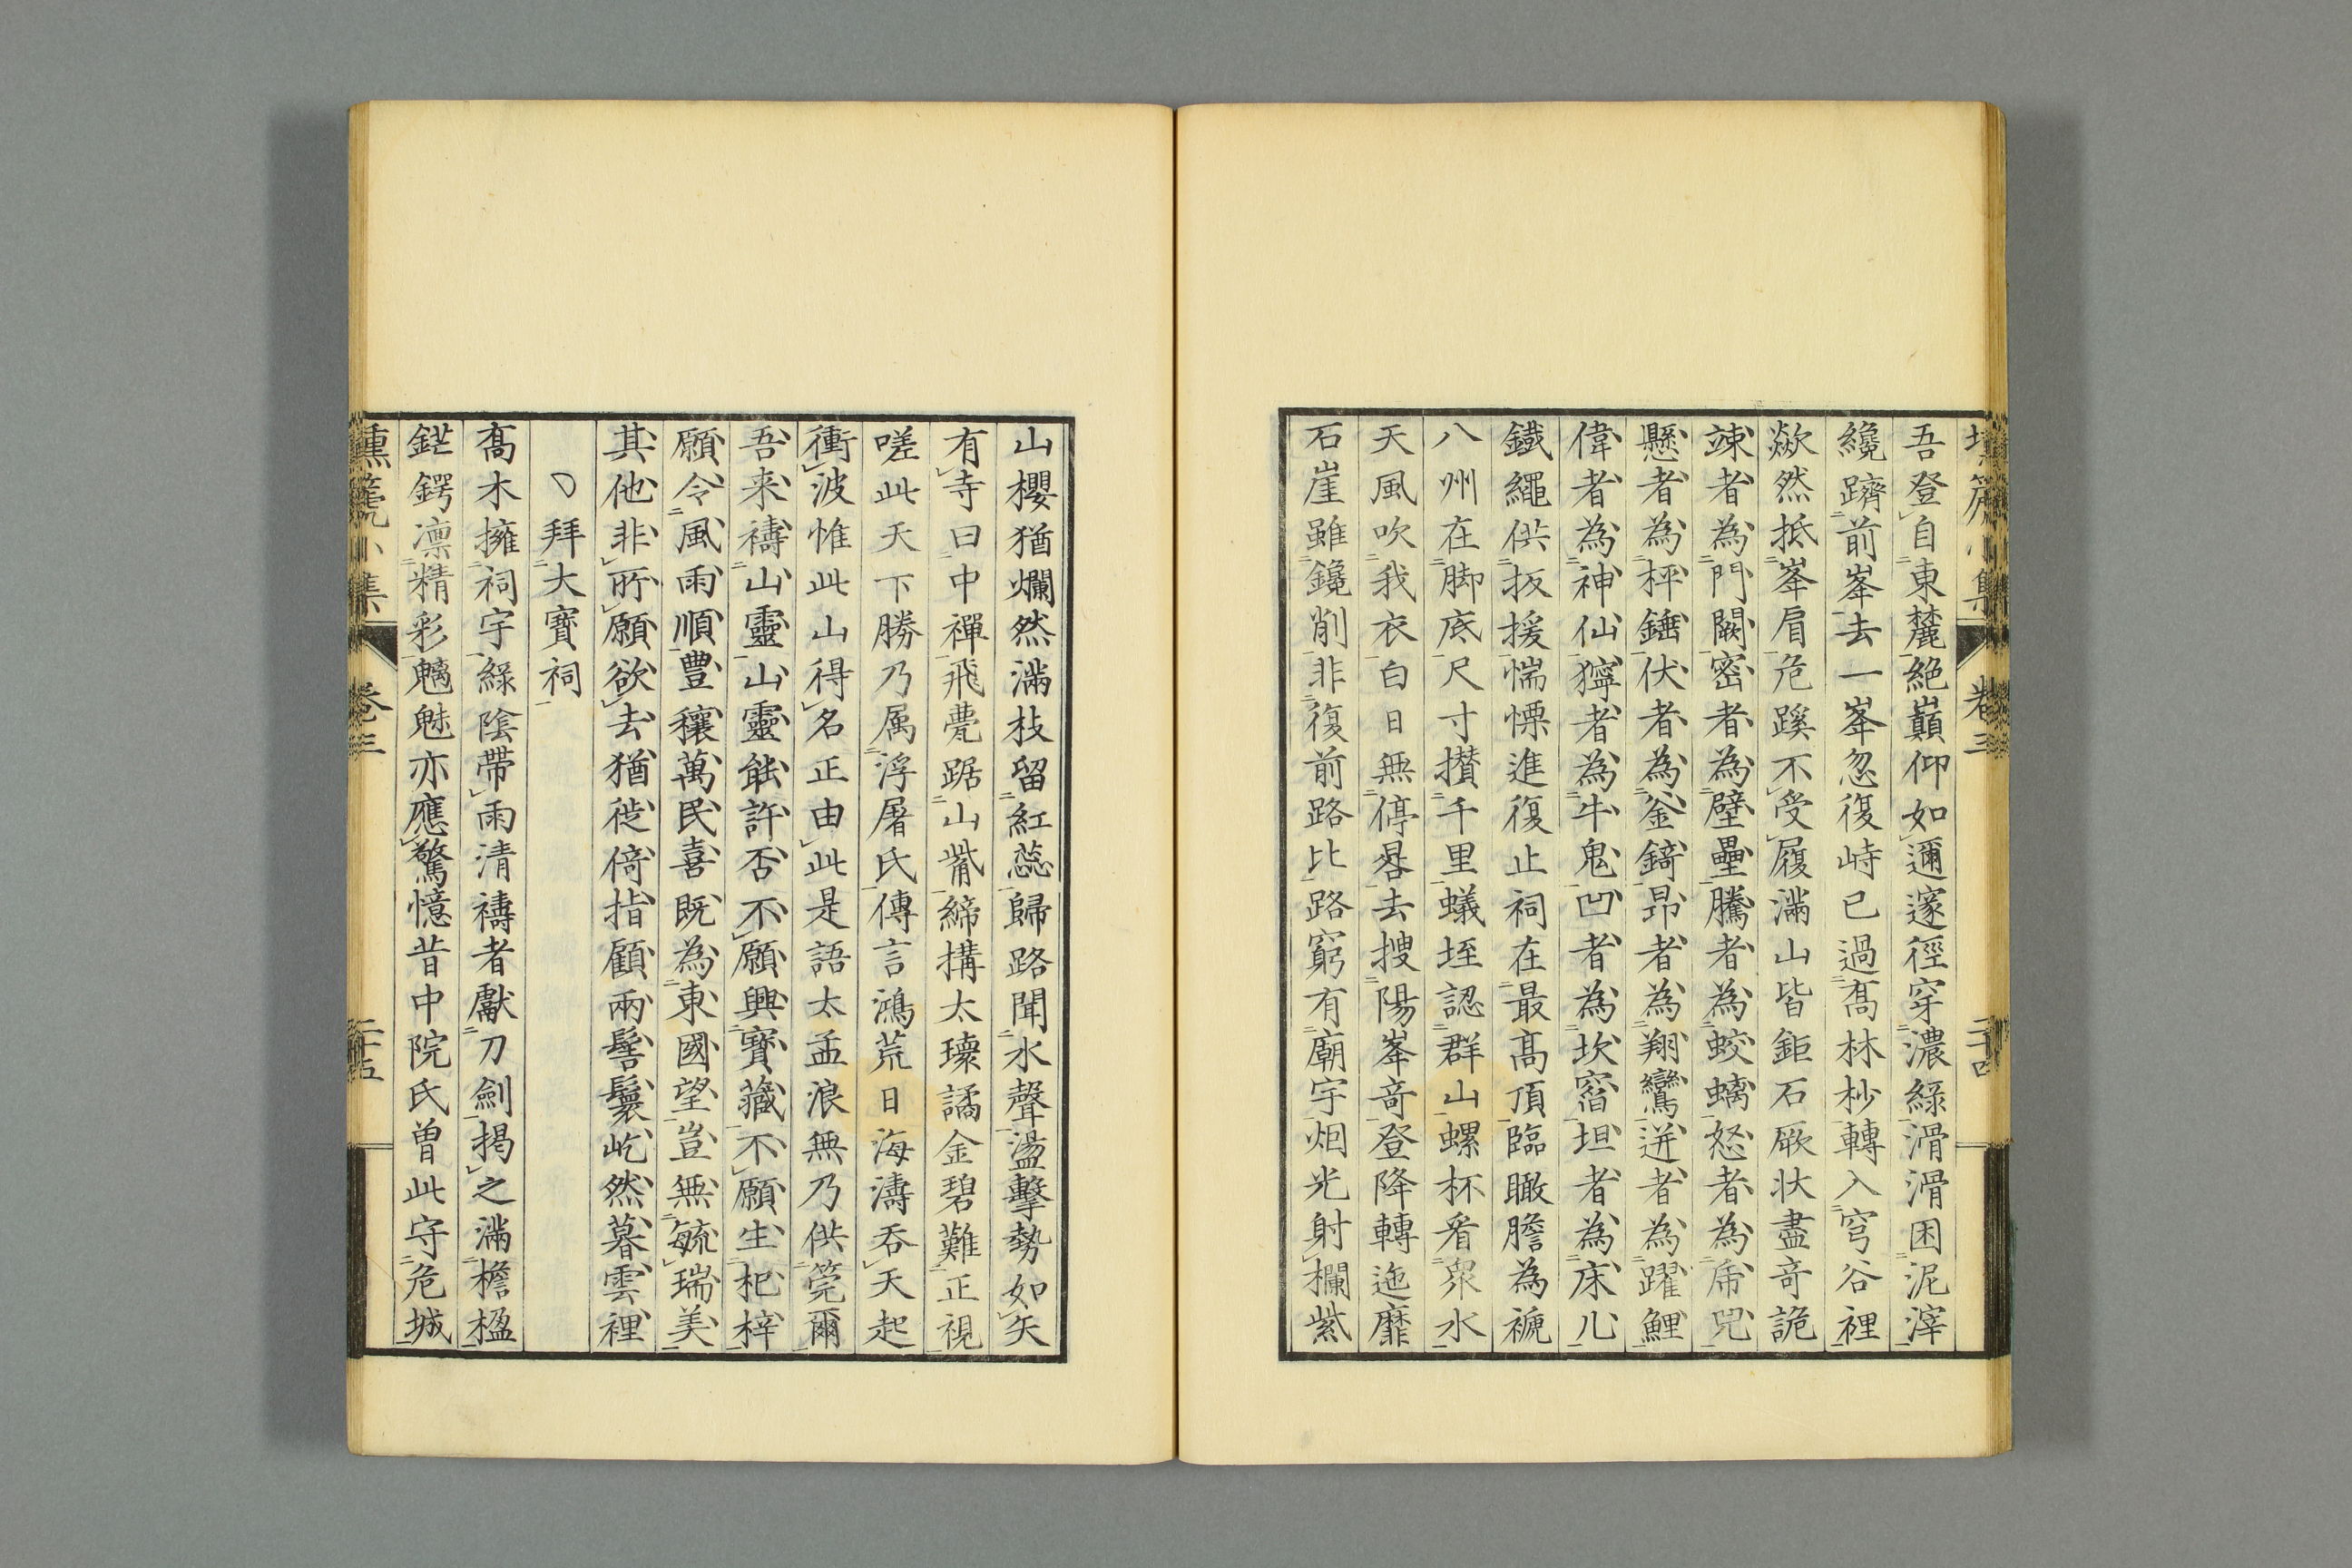 吾登自東麓絶巓仰如邇邃徑穿濃緑滑滑困泥滓
纔躋前峯去一峯忽復峙已過髙林杪轉入穹谷裡
歘然抵峯肩危蹊不受履滿山皆鉅石厥状盡竒詭
竦者為門闕密者為壁壘騰者為蛟螭怒者為虎兕
懸者為枰錘伏者為釜錡昂者為翔鸞迸者為躍鯉
偉者為神仙獰者為牛鬼凹者為坎窞坦者為床几
鐡繩供扳援惴慄進復止祠在最髙頂臨瞰膽為褫
八州在脚底尺寸攅千里蟻垤認群山螺杯看衆水
天風吹我衣白日無停晷去搜陽峯竒登降轉迤靡
石崖雖鑱削非復前路比路窮有廟宇炬光射欄紫
山櫻猶爛然滿枝留紅蕊歸路聞水聲盪擊勢如矢
有寺曰中禪飛甍踞山觜締搆太瓌譎金碧難正視
嗟此天下勝乃属浮屠氏傳言鴻荒日海濤吞天起
衝波惟此山得名正由此是語太孟浪無乃供莞爾
吾来禱山靈山靈能許否不願興寶藏不願生杞梓
願令風雨順豊穰萬民喜既為東國望豈無毓瑞美
其他非所願欲去猶徙倚指顧兩髻鬟屹然暮雲裡
拜大寶祠
髙木擁祠宇緑陰帶雨清禱者獻刀劍掲之滿檐楹
鋩鍔凛精彩魑魅亦應驚憶昔中院氏曽此守危城
壎箎小集 卷三 二十四
壎箎小集 卷三 二十五